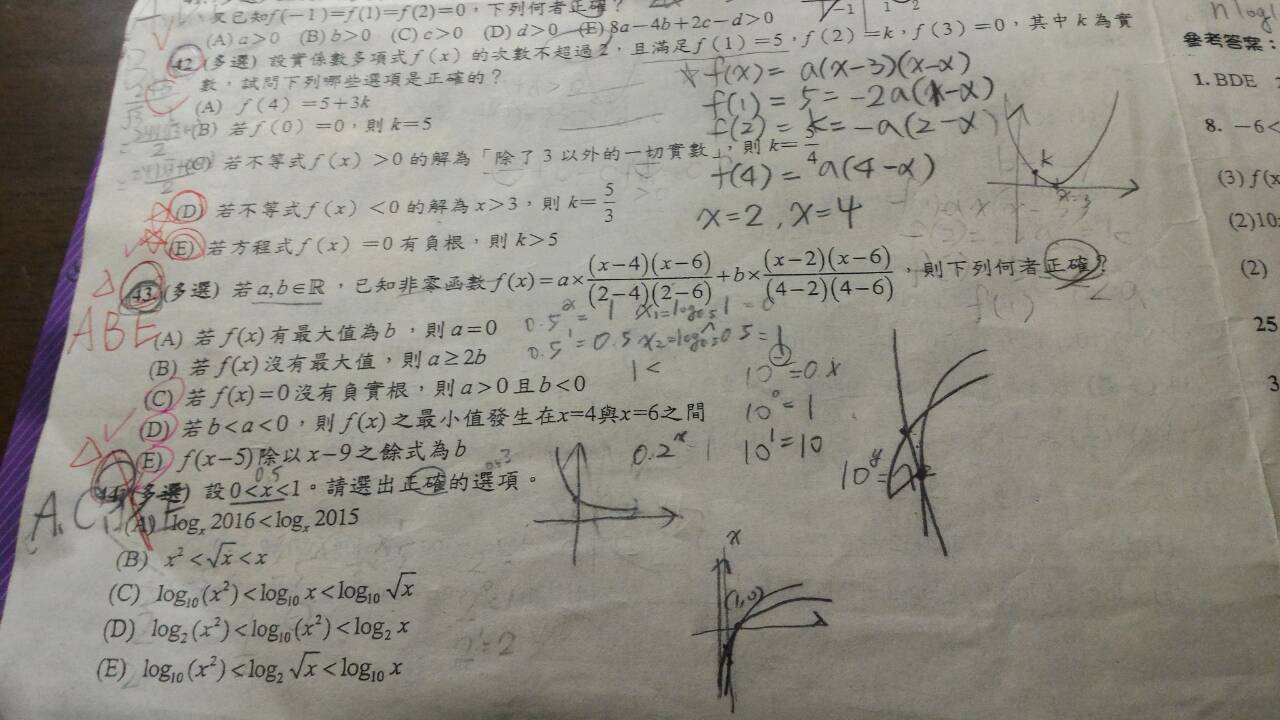 又已知f(-1)=f(1)=f(2)=0，下列何者正確？
(A) a>0 (B) b>0 (C) c>0 (D) d>0 (E) 8a-4b+2c-d>0
-1 1 2
n log
參考答案：
42. (多選) 設實係數多項式f(x)的次數不超過2，且滿足f(1)=5，f(2)=k，f(3)=0，其中k為實
數，試問下列哪些選項是正確的？
(A) f(4)=5+3k
(B) 若f(0)=0，則k=5
(C) 若不等式f(x)>0的解為「除了3以外的一切實數」，則k=5/4
(D) 若不等式f(x)<0的解為x>3，則k=5/3
(E) 若方程式f(x)=0有負根，則k>5
f(x)=a(x-3)(x-α)
f(1)=5=-2a(1-α)
f(2)=k=-a(2-α)
f(4)=a(4-α)
x=2, x=4
k
x=3
1. BDE
8. -6<
(3) f(x
(2)10
(2)
25
3
43. (多選) 若a,b∈ℝ，已知非零函數f(x)=a×(x-4)(x-6)/(2-4)(2-6)+b×(x-2)(x-6)/(4-2)(4-6)，則下列何者正確？
ABE
(A) 若f(x)有最大值為b，則a=0
(B) 若f(x)沒有最大值，則a≥2b
(C) 若f(x)=0沒有負實根，則a>0且b<0
(D) 若b<a<0，則f(x)之最小值發生在x=4與x=6之間
(E) f(x-5)除以x-9之餘式為b
0.5^x=1 x₁=log₀.₅1=0
0.5^1=0.5 x₂=log₀.₅0.5=1
1<
f(1)
10^⊖=0x
10^0=1
10^1=10
0.2^x
10^y=
44. (多選) 設0<x<1。請選出正確的選項。
0.5
A.C
(A) logₓ2016<logₓ2015
(B) x²<√x<x
(C) log₁₀(x²)<log₁₀x<log₁₀√x
(D) log₂(x²)<log₁₀(x²)<log₂x
(E) log₁₀(x²)<log₂√x<log₁₀x
x
(1,0)